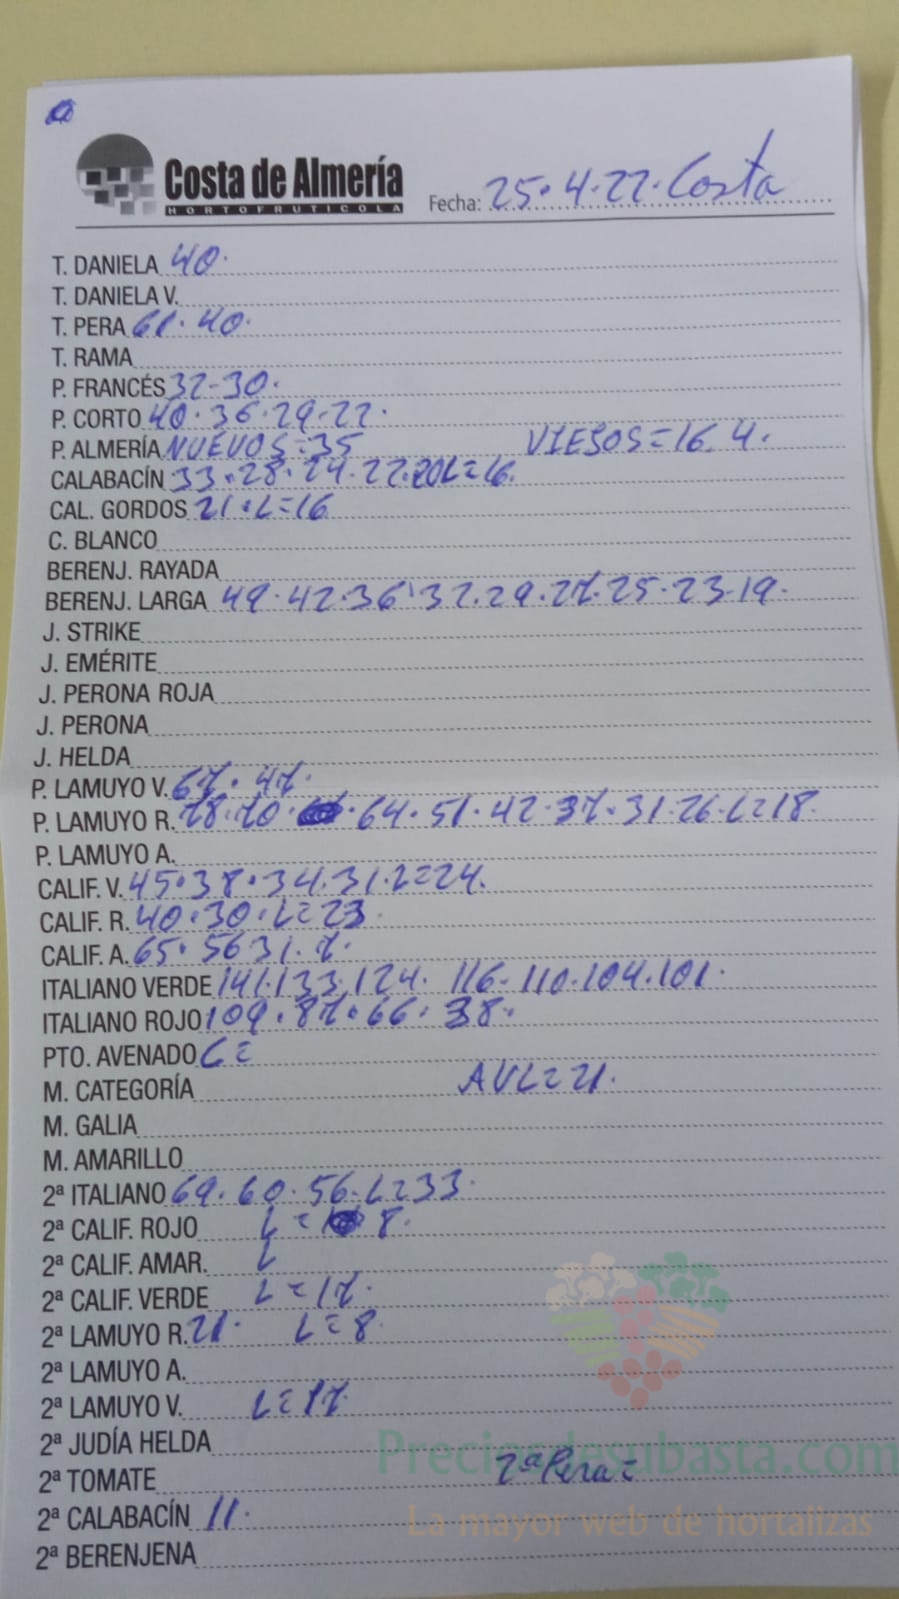 Costa de Almería
HORTOFRUTICOLA
Fecha: 25.4.22. Costa
T. DANIELA 40.
T. DANIELA V.
T. PERA 61. 40.
T. RAMA
P. FRANCÉS 32-30.
P. CORTO 40. 36. 29-22.
P. ALMERÍA NUEVOS=35 VIEJOS=16.4.
CALABACÍN 33.28.24.22.20L=16.
CAL. GORDOS 21.L=16
C. BLANCO
BERENJ. RAYADA
BERENJ. LARGA 49.42.36.32.29.27.25.23.19.
J. STRIKE
J. EMÉRITE
J. PERONA ROJA
J. PERONA
J. HELDA
P. LAMUYO V. 67. 47.
P. LAMUYO R. 78.70. 64.51.42.37.31.26.L=18.
P. LAMUYO A.
CALIF. V. 45.38.34.31.L=24.
CALIF. R. 40.30.L=23.
CALIF. A. 65. 56 31. 7.
ITALIANO VERDE 141.133.124. 116-110.104.101.
ITALIANO ROJO 109.87.66. 38.
PTO. AVENADO L=
M. CATEGORÍA AVL=21.
M. GALIA
M. AMARILLO
2ª ITALIANO 69.60.56.L=33.
2ª CALIF. ROJO L= 8.
2ª CALIF. AMAR. L
2ª CALIF. VERDE L=17.
2ª LAMUYO R. 21. L=8.
2ª LAMUYO A.
2ª LAMUYO V. L=17
2ª JUDÍA HELDA
Preciosdesubasta.com
2ª TOMATE 2ª Pera=
2ª CALABACÍN 11.
La mayor web de hortalizas
2ª BERENJENA